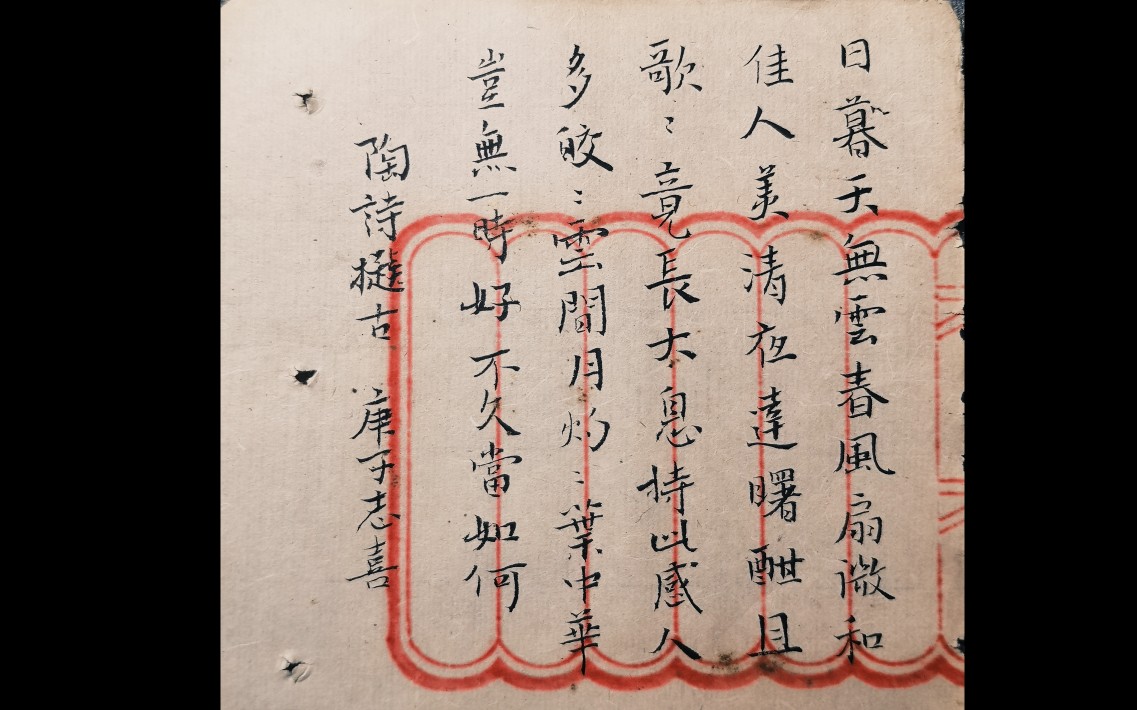 日暮天無雲春風扇微和
佳人美清夜達曙酣且
歌〻竟長太息持此感人
多皎〻雲間月灼〻葉中華
豈無一時好不久當如何
陶詩擬古 庚子志喜